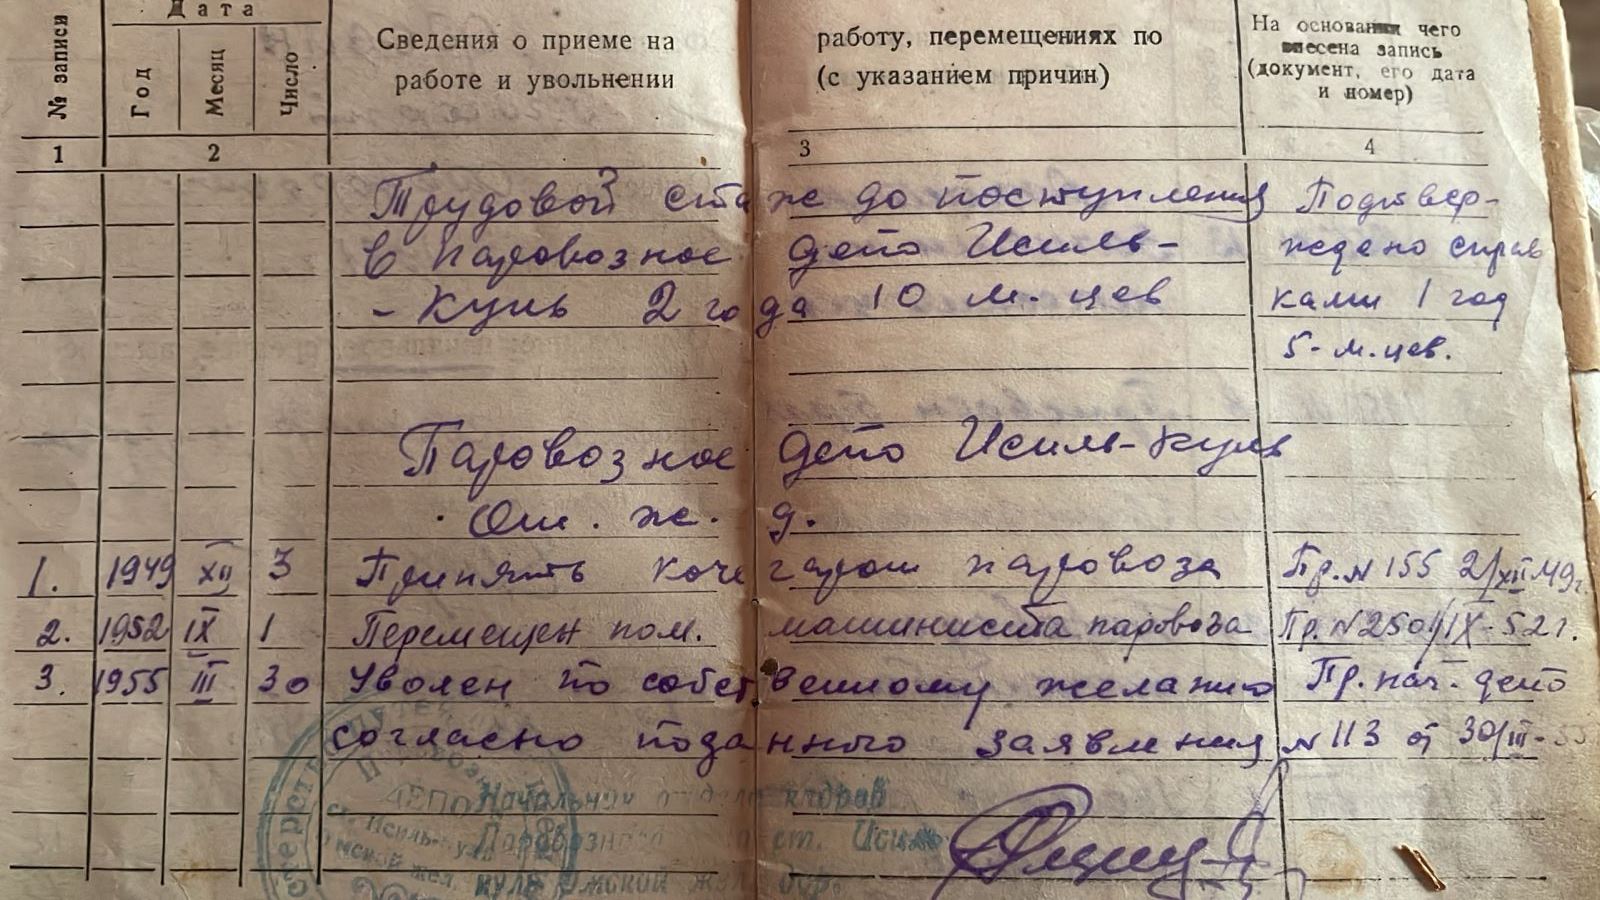 Дата
№ записи
Год
Месяц
Число
Сведения о приеме на работу, перемещениях по
работе и увольнении (с указанием причин)
На основании чего
внесена запись
(документ, его дата
и номер)
1 2 3 4
Трудовой стаж до поступления Подтвер-
в паровозное депо Исиль- ждено справ
-Куль 2 года 10 м.цев ками 1 год
5-м.цев.
Паровозное депо Исиль-Куль
Ом. ж. д.
1. 1949 XII 3 Принят кочегаром паровоза Пр.N 155 2/XII 49г.
2. 1952 IX 1 Перемещен пом. машиниста паровоза Пр.N 250 1/IX-52г.
3. 1955 III 30 Уволен по собственному желанию Пр. нач. депо
согласно поданного заявления N 113 от 30/III-55
Начальник отдела кадров
Паровозного ст. Исиль
куль Омской жел. дор.
ДЕПО
ст. Исиль-Куль
Омской жел.